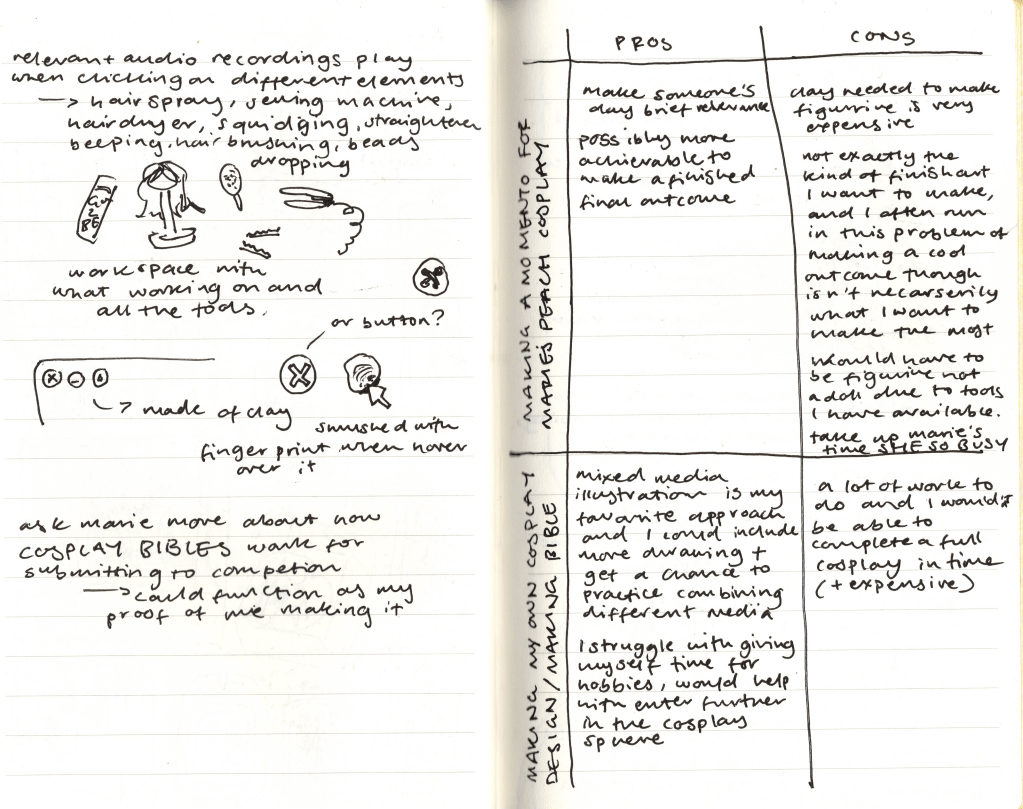 relevant audio recordings play
when clicking on different elements
—> hairspray, sewing machine,
hairdryer, squidging, straightener
beeping, hair brushing, beads
dropping
work space with
what working on and
all the tools.
or button?
—> made of clay
smushed with
finger print when hover
over it
ask marie more about how
COSPLAY BIBLES work for
submitting to competion
—> could function as my
proof of me making it
PROS
CONS
MAKING A MOMENTO FOR
MARIES PEACH COSPLAY
make someone's
day brief relevance
possibly more
achievable to
make a finished
final outcome
clay needed to make
figurine is very
expensive
not exactly the
kind of finish art
I want to make,
and I often run
in this problem of
making a cool
outcome though
isn't necarserily
what I want to
make the most
would have to
be figurine not
a doll due to tools
I have available.
take up marie's
time SHE SO BUSY
MAKING MY OWN COSPLAY
DESIGN/MAKING BIBLE
mixed media
illustration is my
favorite approach
and I could include
more drawing +
get a chance to
practice combining
different media
I struggle with giving
myself time for
hobbies, would help
with enter further
in the cosplay
sphere
a lot of work to
do and I wouldn't
be able to
complete a full
cosplay in time
(+ expensive)